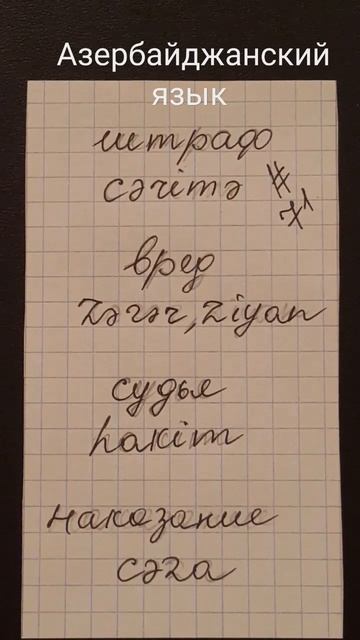 Азербайджанский
язык
штраф
cərimə #71
вред
zərər, ziyan
судья
hakim
наказание
cəza